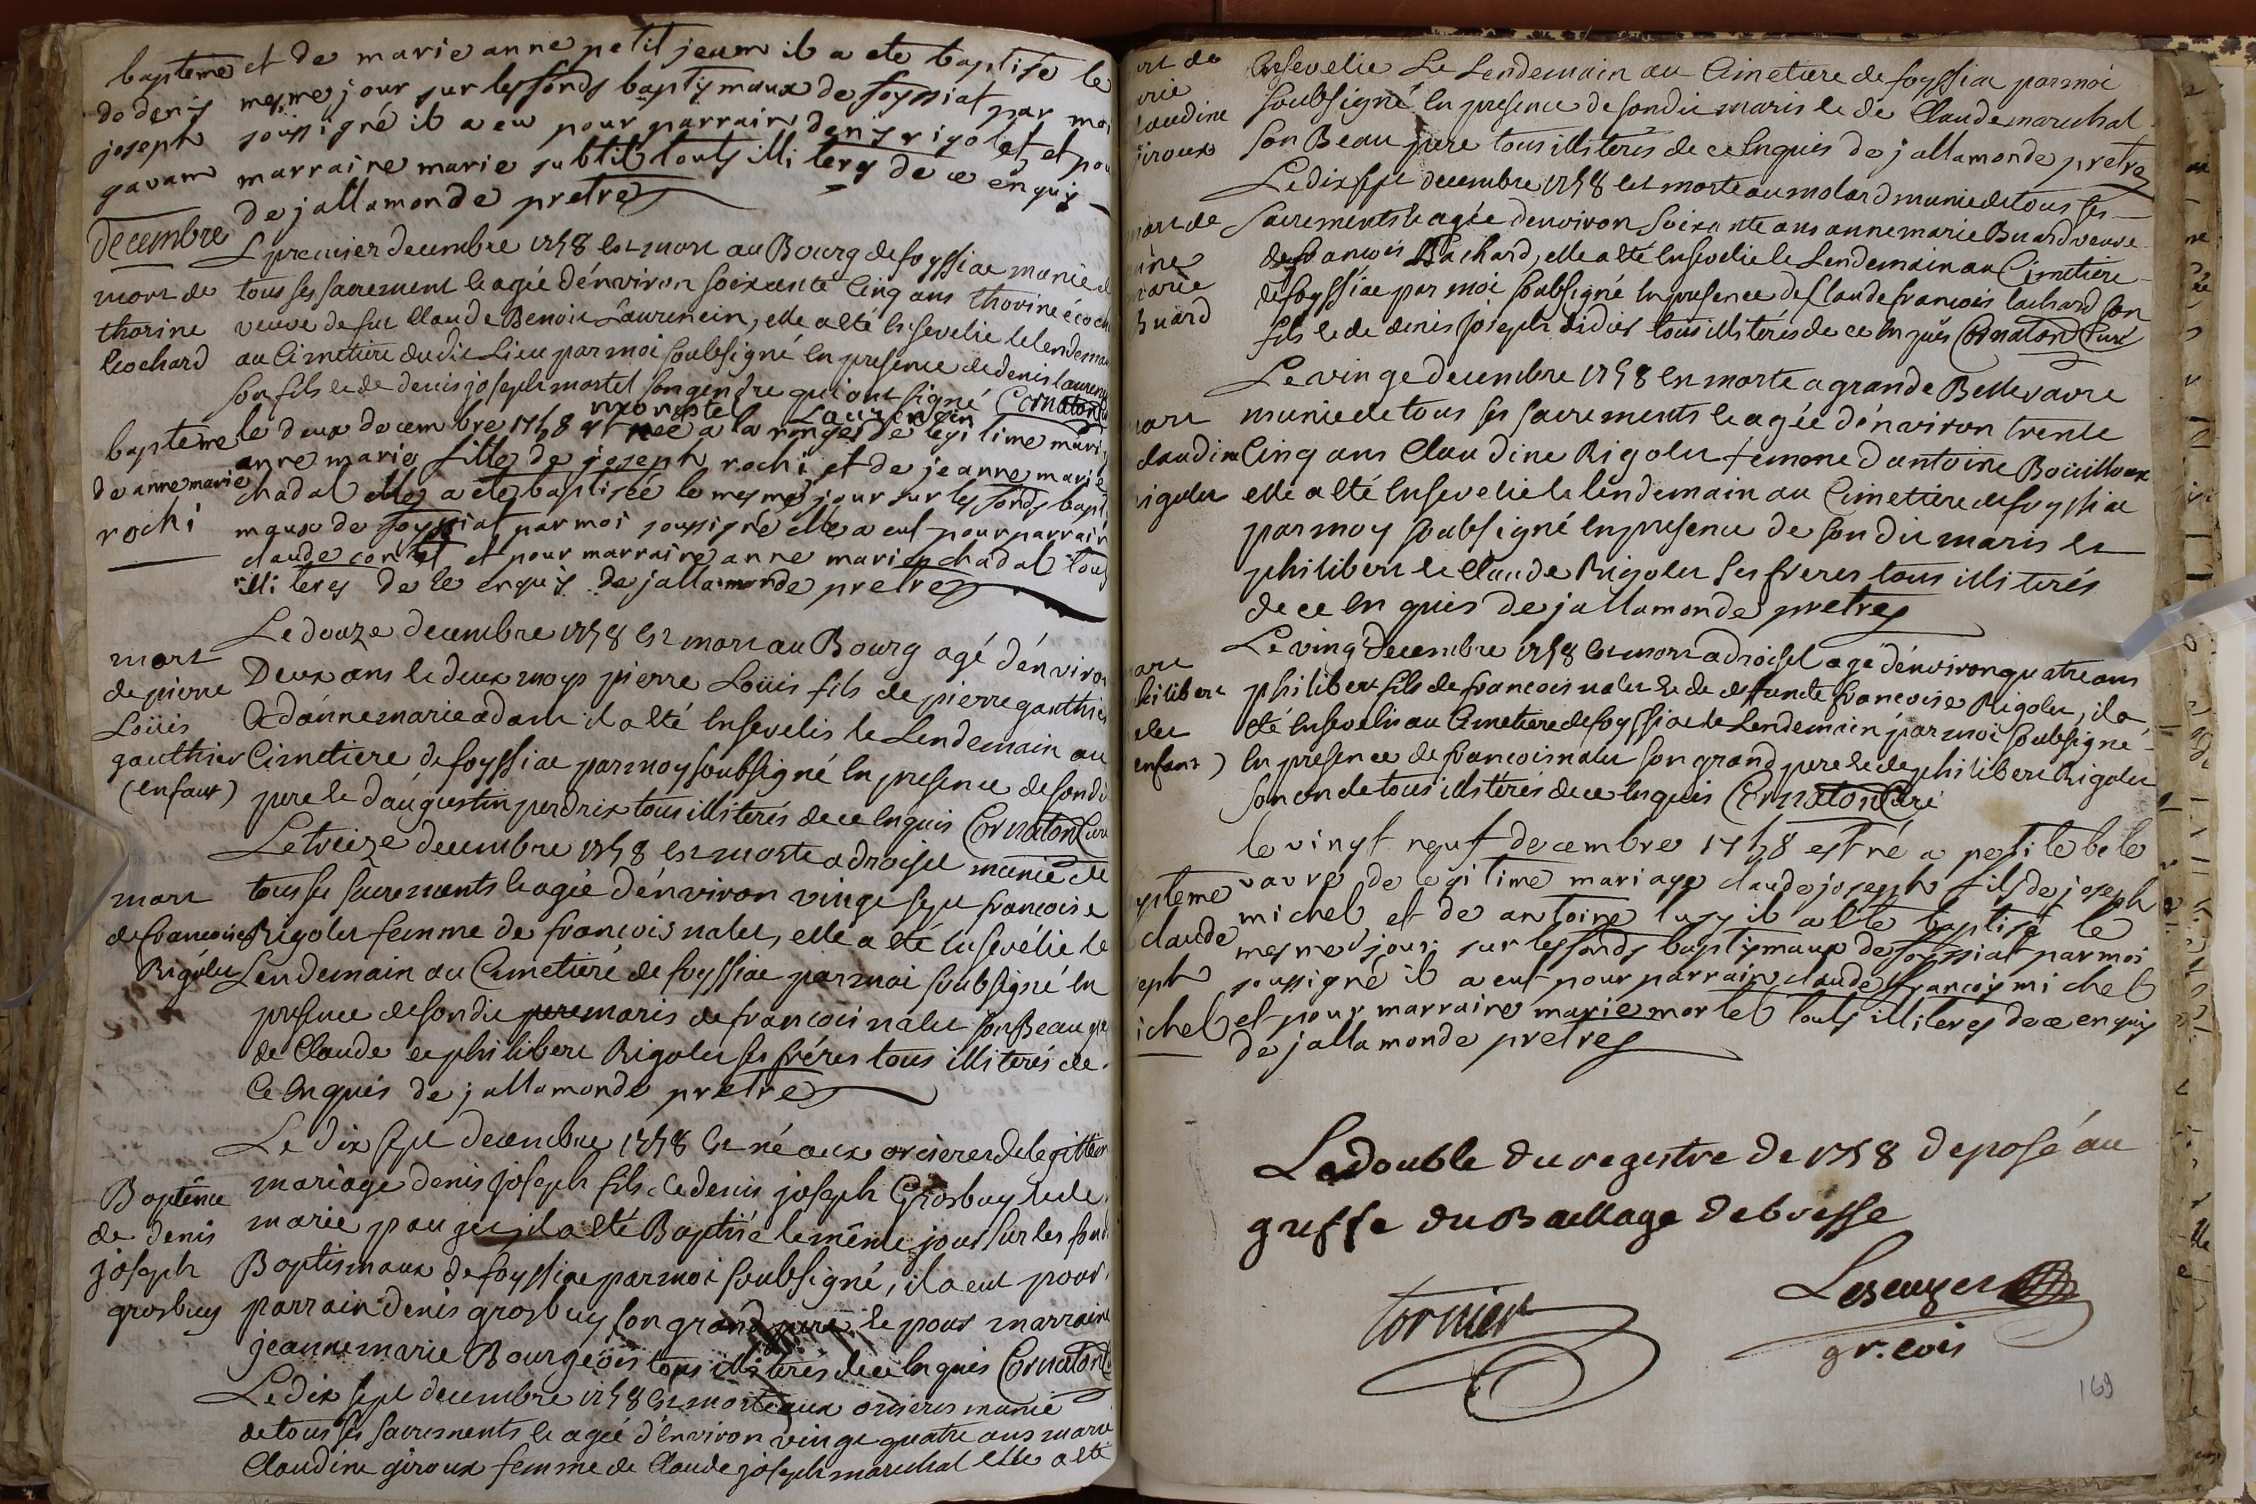 baptême et de marie anne petit jean il a ete baptisé le
de denis mesme jour sur les fonds baptismaux de foyssiat par moi
joseph soussigné il a eu pour parrain denis rigolet et pour
gavam marraine marie subtil touts illiteres de ce enquis
de jallamonde pretre
decembre
Le premier decembre 1758 est mort au Bourg de foyssiac munie de
mort de tous ses sacrement et agée d'énviron soixante Cinq ans thorine
thorine veuve de fut Claude Benoit Laurencin, elle a été ensevelie le lendemain
Cochard au Cimetiere dudit Lieu par moi soubsigné en presence de denis laurencin
son fils et de denis joseph mortel son gendre qui ont signé Cornaton
mortel Laurencin
baptême le deux decembre 1758 est née a la de legitime mari
de anne marie anne marie fille de joseph rochi et de jeanne marie
rochi chadal elle a ete baptisée le mesme jour sur les fonds bapti
maux de foyssiat par moi soussigné elle a eut pour parrain
claude et pour marraine anne marie chadal touts
illiteres de ce enquis de jallamonde pretre
Le douze decembre 1758 est mort au Bourg agé d'énviron
mort Deux ans et deux moys pierre Loüis fils de pierre gauthier
de pierre & d'anne marie adam il a été Ensevelis le Lendemain au
Loüis Cimetiere de foyssiac par moy soubsigné en presence de son dit
gauthier pere et d'augustin perdrix tous illiterés de ce enquis Cornaton Curé
(enfant)
Le treize decembre 1758 est morte a droisel munie de
mort tous ses sacrements et agée d'énviron vingt sept francoise
de francoise Rigolet femme de francois nalet, elle a été Ensevélie le
Rigolet Lendemain au Cimetieré de foyssiac par moi soubsigné en
presence de son dit pere maris de francois nalet son Beau pere
de Claude et philibert Rigolet ses fréres tous illiterés de
Ce enquis de jallamonde pretre
Le dix sept decembre 1758 est né aux orcieres de legitime
Baptême mariage denis joseph fils de denis joseph Grosbuy et de
de denis marie pauget, il a été Baptisé le même jour sur les fonds
joseph Baptismaux de foyssiac par moi soubsigné, il a eut pour
grosbuy parrain denis grosbuy son grand pere et pour marraine
jeanne marie Bourgeois tous illiterés de ce enquis Cornaton
Le dix sept decembre 1758 est morte aux orcieres munie
de tous ses sacrements et agée d'énviron vingt quatre ans marie
Claudine giroux femme de Claude joseph marechal elle a été
Ensevelie Le Lendemain au Cimetiere de foyssiac par moi
soubsigné en presence de son dit maris et de Claude marechal
son Beau pere tous illiterés de ce enquis de jallamonde pretre
Le dix sept decembre 1758 est morte au molard munie de tous ses
mort de sacrements et agée d'environ soixante ans anne marie Buard veuve
marie de francois Bachard, elle a été Ensevelie le Lendemain au Cimetiere
Buard de foyssiac par moi soubsigné en presence de Claude francois bachard son
fils et de denis joseph didier tous illiterés de ce enquis Cornaton Curé
Le vingt decembre 1758 est morte a grande Bellevavre
munie de tous ses sacrements et agée d'énviron trente
Cinq ans Claudine Rigolet femme d'antoine Boüilloux
elle a été Ensevelie le lendemain au Cimetiere de foyssiac
par moy soubsigné en presence de son dit maris et
philibert et Claude Rigolet ses freres tous illiterés
de ce enquis de jallamonde pretre
Le vingt decembre 1758 est mort a droisel agé d'énviron quatre ans
philibert fils de francois nalet et de deffunte francoise Rigolet, il a
été Ensevelis au Cimetiere de foyssiac le Lendemain par moi soubsigné
enfant) en presence de francois nalet son grand pere et de philibert Rigolet
son oncle tous illiterés de ce enquis Cornaton Curé
le vingt neuf decembre 1758 est né a petite bele
vavre de legitime mariage claude joseph fils de joseph
claude michel et de antoine luzy il a été baptisé le
mesme jour sur les fonds baptismaux de foyssiat par moi
soussigné il a eut pour parrain claude francois michel
et pour marraine marie mortel touts illiteres de ce enquis
de jallamonde pretre
Le double du registre de 1758 deposé au
greffe du Baillage de bresse
tornier
gr. civis
169